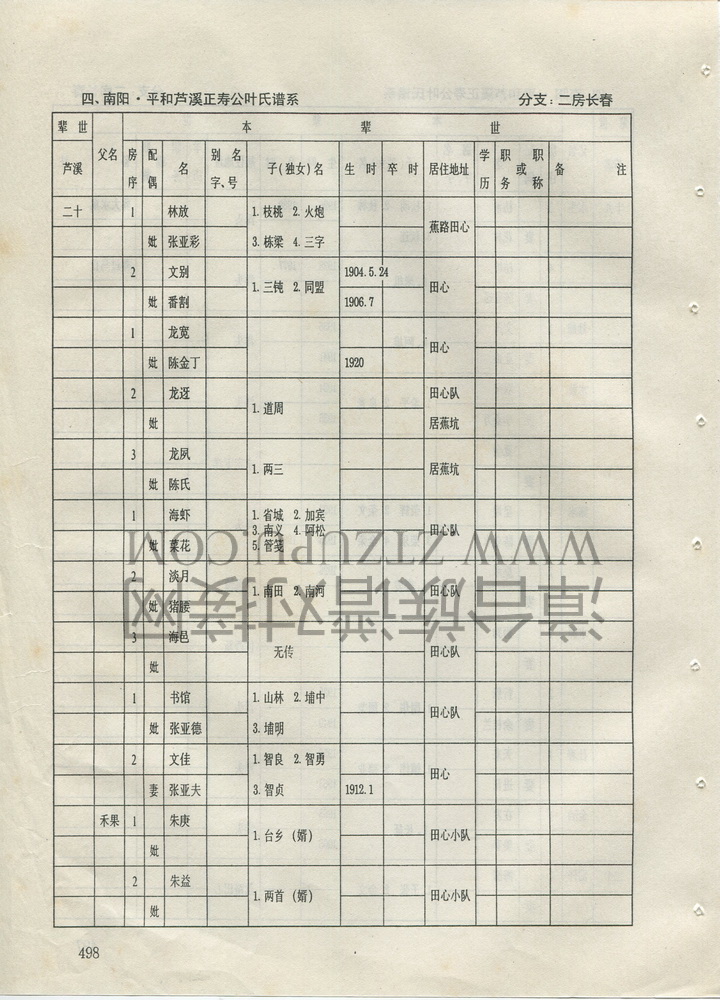 四、南阳·平和芦溪正寿公叶氏谱系 分支：二房长春
辈世 父名 本辈世
芦溪 房序 配偶 名 别名字、号 子(独女)名 生时 卒时 居住地址 学历 职务或职称 备注
二十 1 林放 1.枝桃 2.火炮 蕉路田心
妣 张亚彩 3.栋梁 4.三字
2 文别 1.三钝 2.同盟 1904.5.24 田心
妣 番割 1906.7
1 龙宽 田心
妣 陈金丁 1920
2 龙迓 1.道周 田心队
妣 居蕉坑
3 龙凤 1.两三 居蕉坑
妣 陈氏
1 海虾 1.省城 2.加宾 田心队
3.南义 4.阿松
妣 菜花 5.管笺
2 淡月 1.南田 2.南河 田心队
妣 猪腰
3 海邑 无传 田心队
妣
1 书馆 1.山林 2.埔中 田心队
妣 张亚德 3.埔明
2 文佳 1.智良 2.智勇 田心
妻 张亚夫 3.智贞 1912.1
禾果 1 朱庚 1.台乡(婿) 田心小队
妣
2 朱益 1.两首(婿) 田心小队
妣
498
WWW.ZTZUPU.COM
漳台族谱对接网